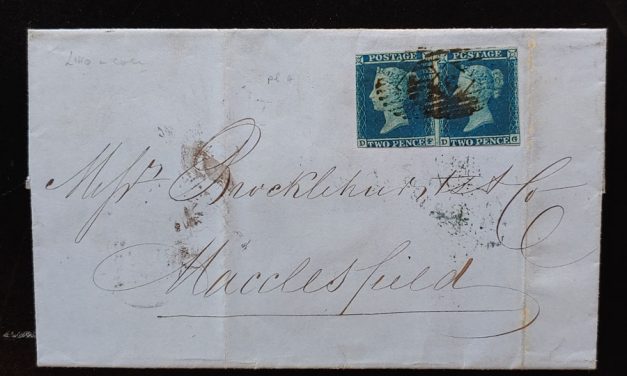 POSTAGE POSTAGE
TWO PENCE TWO PENCE
D F D G
pl 4
Messrs Brocklehurst & Co
Macclesfield